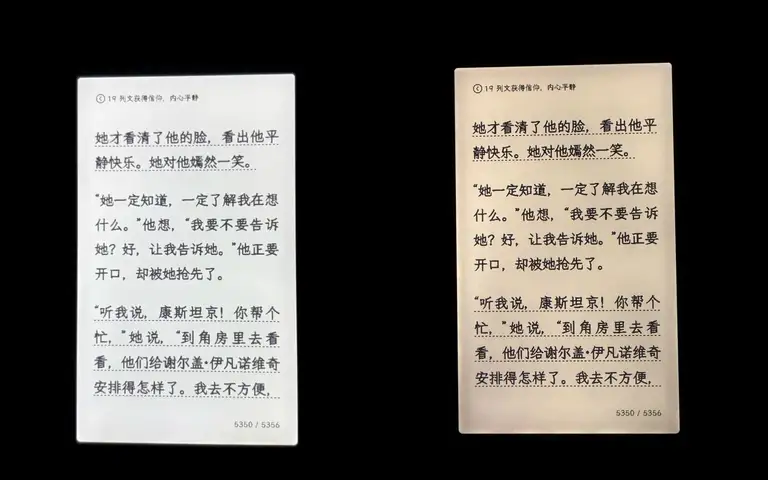 19 列文获得信仰，内心平静
她才看清了他的脸，看出他平
静快乐。她对他嫣然一笑。
“她一定知道，一定了解我在想
什么。”他想，“我要不要告诉
她？好，让我告诉她。”他正要
开口，却被她抢先了。
“听我说，康斯坦京！你帮个
忙，”她说，“到角房里去看
看，他们给谢尔盖·伊凡诺维奇
安排得怎样了。我去不方便，
5350 / 5356
19 列文获得信仰，内心平静
她才看清了他的脸，看出他平
静快乐。她对他嫣然一笑。
“她一定知道，一定了解我在想
什么。”他想，“我要不要告诉
她？好，让我告诉她。”他正要
开口，却被她抢先了。
“听我说，康斯坦京！你帮个
忙，”她说，“到角房里去看
看，他们给谢尔盖·伊凡诺维奇
安排得怎样了。我去不方便，
5350 / 5356